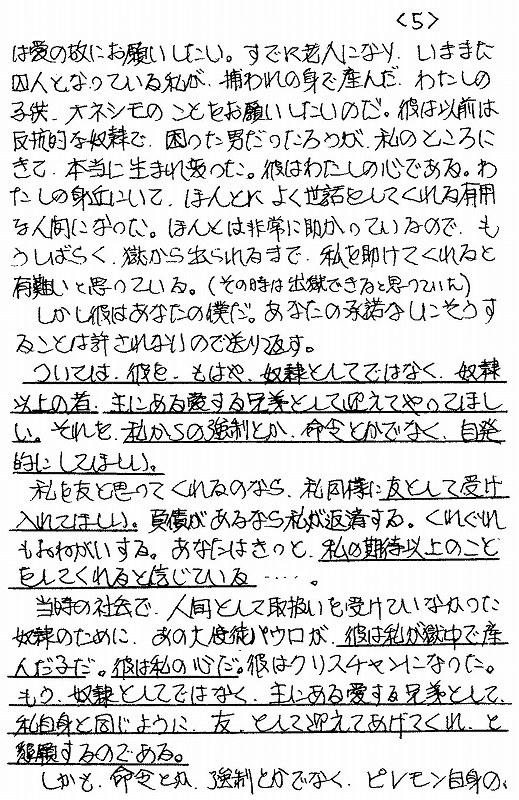 <5>
は愛の故にお願いしたい。すでに老人になり、いままた
囚人となっている私が、捕われの身で産んだ、わたしの
子供、オネシモのことをお願いしたいのだ。彼は以前は
反抗的な奴隷で、困った男だったろうが、私のところに
きて、本当に生まれ変った。彼はわたしの心である。わ
たしの身近にいて、ほんとによく世話をしてくれる有用
な人间になった。ほんとは非常に助かっているので、も
うしばらく、獄から出られるまで、私を助けてくれると
有難いと思っている。(その時は出獄できると思っていた)
しかし彼はあなたの僕だ。あなたの承諾なしにそうす
ることは許されないので送り返す。
ついては、彼を、もはや、奴隷としてではなく、奴隷
以上の者、主にある愛する兄弟として迎えてやってほし
い。それを、私からの強制とか、命令とかでなく、自発
的にしてほしい。
私を友と思ってくれるのなら、私同様に友として受け
入れてほしい。負債があるなら私が返済する。くれぐれ
もおねがいする。あなたはきっと、私の期待以上のこと
をしてくれると信じている ‥‥。
当時の社会で、人间として取扱いを受けていなかった
奴隷のために、あの大使徒パウロが、彼は私が獄中で産
んだ子だ。彼は私の心だ。彼はクリスチャンになった。
もう、奴隷としてではなく、主にある愛する兄弟として、
私自身と同じように、友、として迎えてあげてくれ、と
懇願するのである。
しかも、命令とか、強制とかでなく、ピレモン自身の、